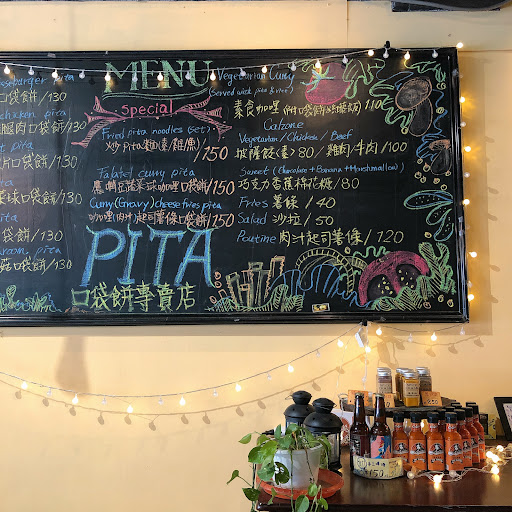 MENU
Special
Fried pita noodles (set)
炒 pita 麵(素/雞/魚)/150
Falafel curry pita
鷹嘴豆蔬菜球咖哩口袋餅/150
Curry (Gravy) cheese fries pita
咖哩(肉汁)起司薯條口袋餅/150
PITA
口袋餅專賣店
pita
口袋餅/130
chicken pita
腿肉口袋餅/130
pita
口袋餅/130
球口袋餅/130
pita
袋餅/130
pita
口袋餅/130
Vegetarian Curry
(Served with pita & rice)
素食咖哩
110
Calzone
Vegetarian / Chicken / Beef
披薩餃(素)80/雞肉/牛肉/100
Sweet (Chocolate + Banana + Marshmallow)
巧克力香蕉棉花糖/80
Fries 薯條/40
Salad 沙拉/50
Poutine 肉汁起司薯條/120
150